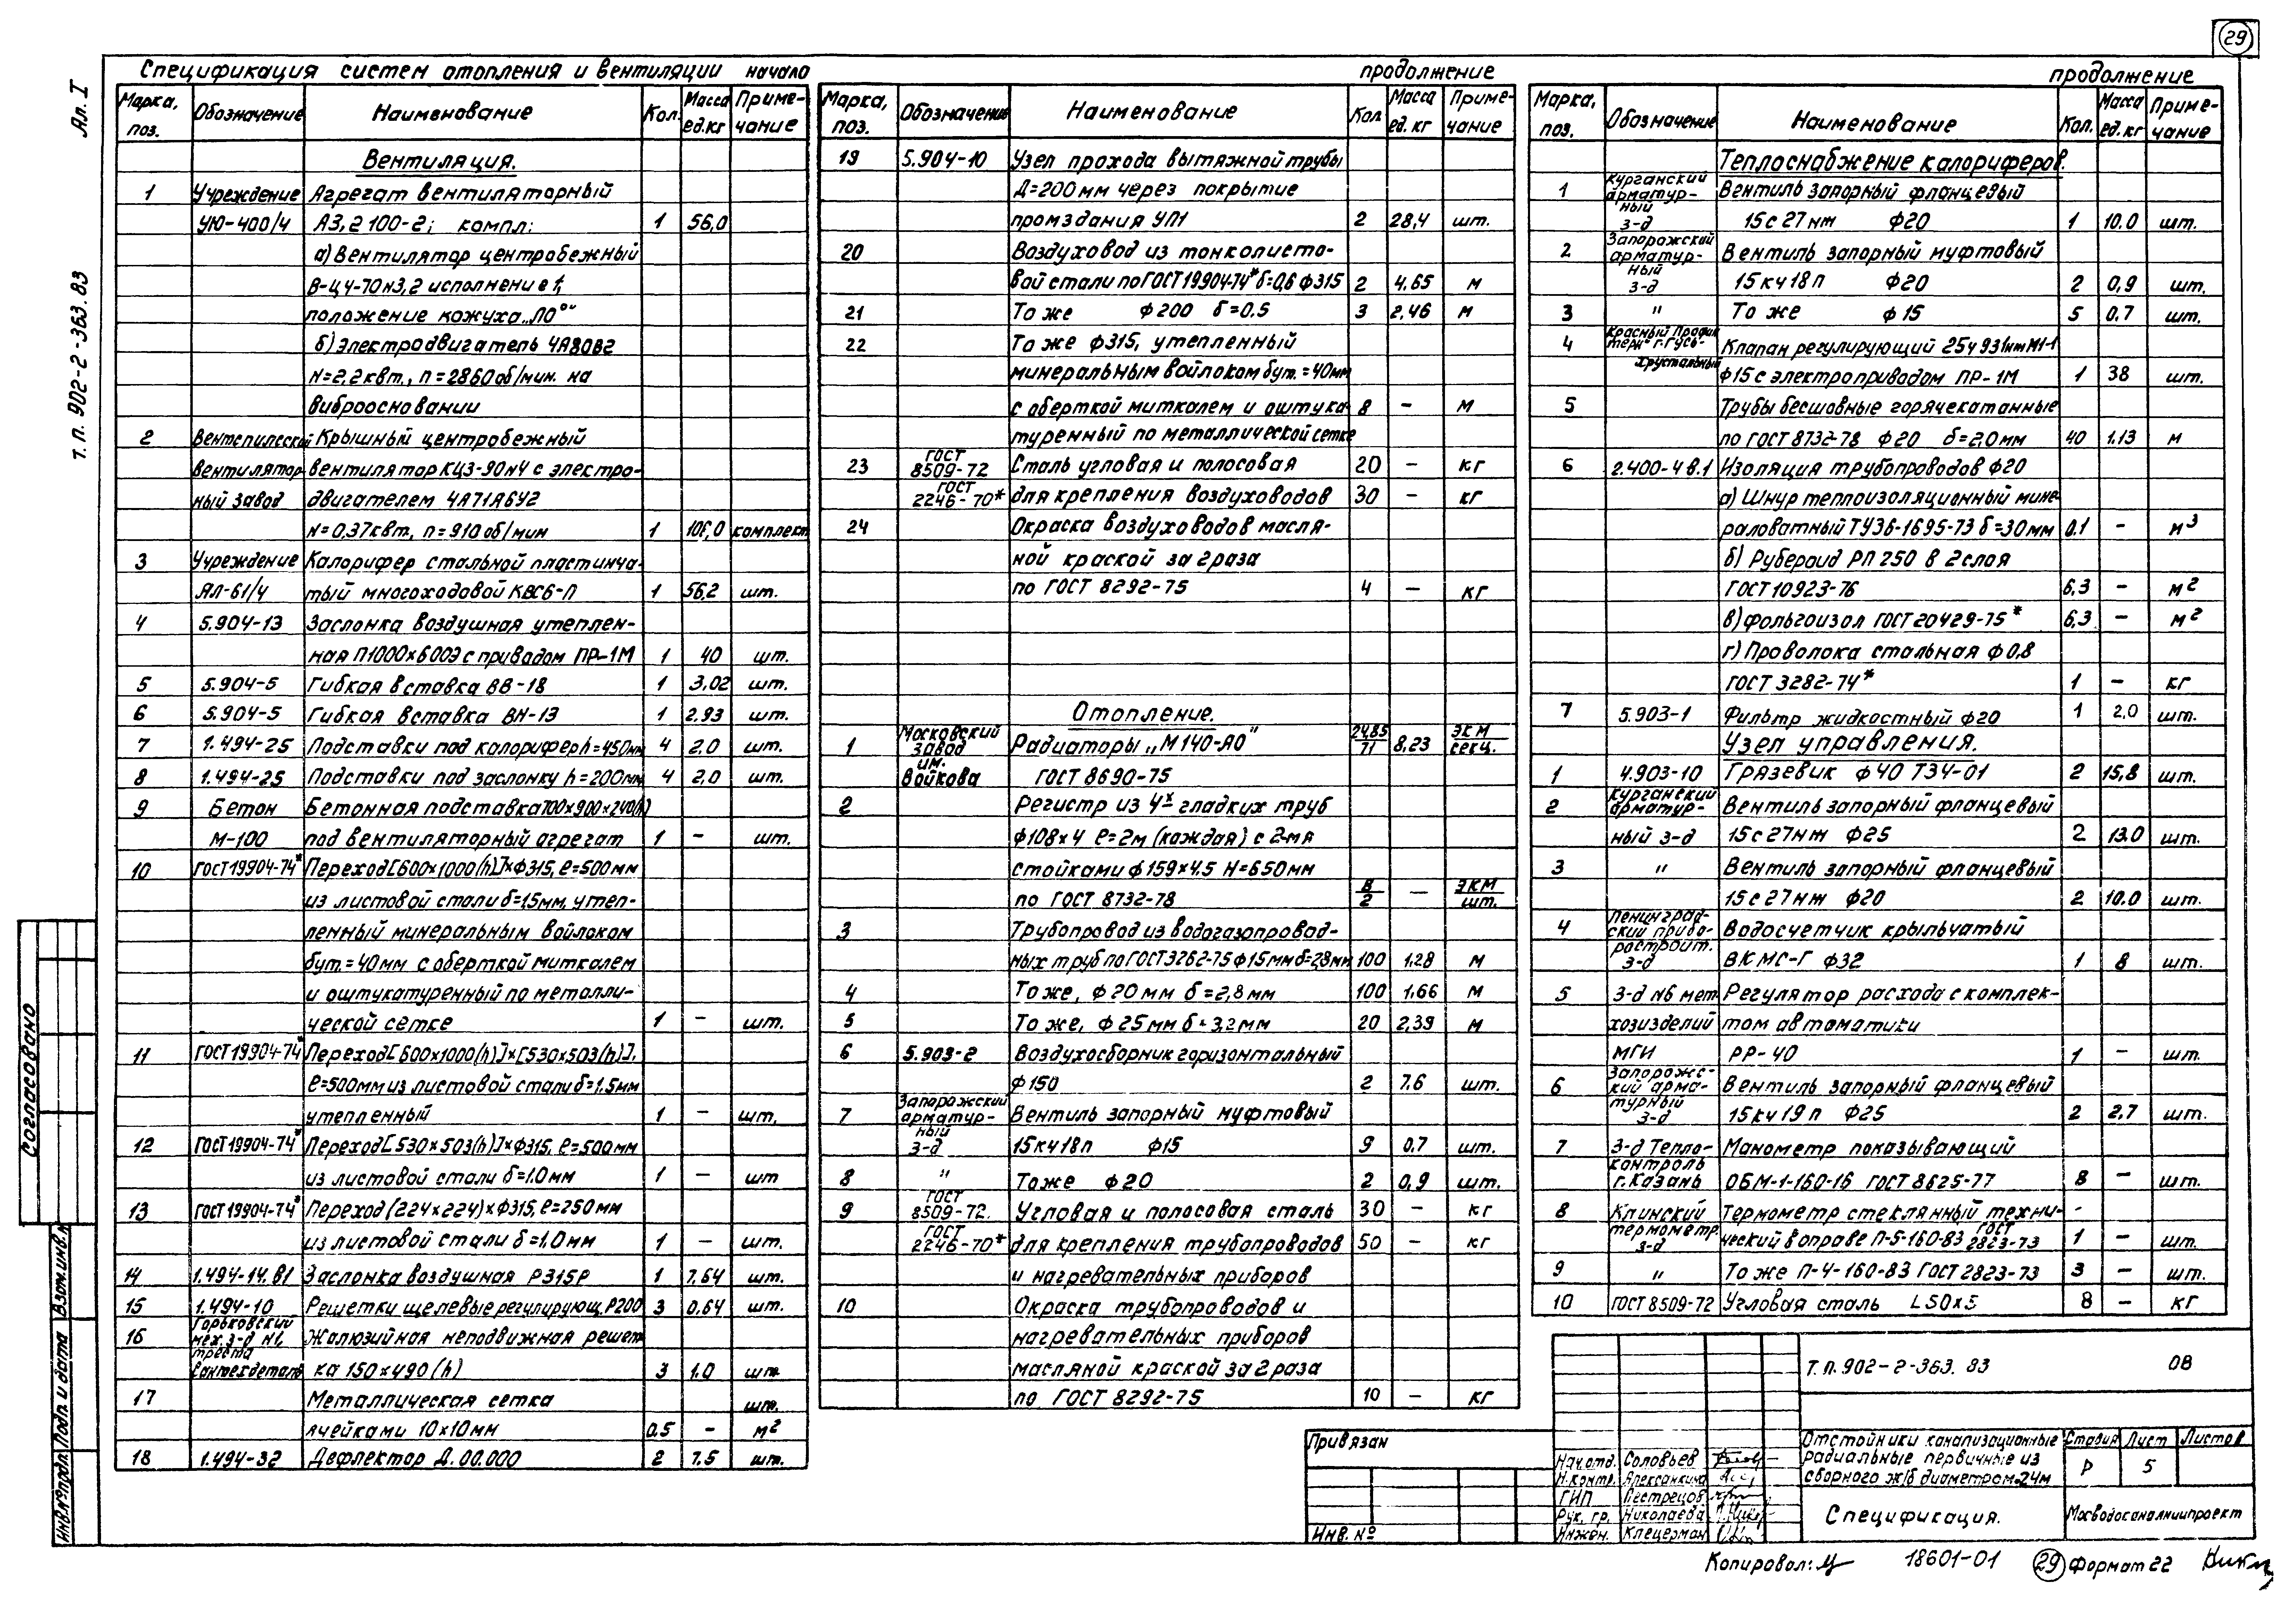 29
Ал. I
т. п. 902-2-363.83
Спецификация систем отопления и вентиляции начало
Марка, поз. Обозначение Наименование Кол. Масса ед. кг Примечание
Вентиляция.
1 Учреждение Агрегат вентиляторный
УЮ-400/4 А3,2 100-2; компл: 1 56,0
а) Вентилятор центробежный
В-Ц4-70№3,2 исполнение 1,
положение кожуха „Л0°"
б) электродвигатель 4А80В2
N=2,2квт., n=2860об/мин. на
виброосновании
2 Вентспилсский Крышный центробежный
вентилятор- вентилятор КЦ3-90№4 с электро-
ный завод двигателем 4А71А6У2
N=0,37квт, n=910об/мин 1 комплект
3 Учреждение Калорифер стальной пластинча-
ЯЛ-61/4 тый многоходовой КВС6-П 1 56,2 шт.
4 5.904-13 Заслонка воздушная утеплен-
ная П1000×600Э с приводом ПР-1М 1 40 шт.
5 5.904-5 Гибкая вставка ВВ-18 1 3,02 шт.
6 5.904-5 Гибкая вставка ВН-13 1 2,93 шт.
7 1.494-25 Подставки под калорифер h=450мм 4 2.0 шт.
8 1.494-25 Подставки под заслонку h=200мм 4 2.0 шт.
9 Бетон Бетонная подставка 700×900×240(h)
М-100 под вентиляторный агрегат 1 – шт.
10 ГОСТ19904-74* Переход [600×1000(h)]×ф315, ℓ=500мм
из листовой стали δ=1,5мм, утеп-
ленный минеральным войлоком
δут.=40мм с оберткой миткалем
и оштукатуренный по металли-
ческой сетке 1 – шт.
11 ГОСТ19904-74* Переход [600×1000(h)]×[530×503(h)],
ℓ=500мм из листовой стали δ=1.5мм
утепленный 1 – шт.
12 ГОСТ19904-74* Переход [530×503(h)]×ф315, ℓ=500мм
из листовой стали δ=1.0мм 1 – шт
13 ГОСТ19904-74* Переход (224×224)×ф315, ℓ=250мм
из листовой стали δ=1.0мм 1 – шт.
14 1.494-14.В1 Заслонка воздушная Р315Р 1 7.64 шт.
15 1.494-10 Решетки щелевые регулирующ. Р200 3 0.64 шт.
16 Горьковский мех. з-д №1, треста Сантехдеталь Жалюзийная неподвижная решет
ка 150×490(h) 3 1.0 шт.
17 Металлическая сетка шт.
ячейками 10×10мм 0.5 – м²
18 1.494-32 Дефлектор Д.00.000 2 7.5 шт.
продолжение
Марка, поз. Обозначение Наименование Кол. Масса ед. кг Примечание
19 5.904-10 Узел прохода вытяжной трубы
Д=200мм через покрытие
промздания УП1 2 28,4 шт.
20 Воздуховод из тонколисто-
вой стали по ГОСТ19904-74* δ=0,6 ф315 2 4.65 м
21 То же ф200 δ=0.5 3 2,46 м
22 То же ф315, утепленный
минеральным войлоком δут.=40мм
с оберткой миткалем и оштука- 8 – м
туренный по металлической сетке
23 ГОСТ 8509-72 Сталь угловая и полосовая 20 – кг
ГОСТ 2246-70* для крепления воздуховодов 30 – кг
24 Окраска воздуховодов масля-
ной краской за 2 раза
по ГОСТ 8292-75 4 – кг
Отопление.
1 Московский завод им. Войкова Радиаторы „М140-АО" 24,85/71 8,23 экм/секц.
ГОСТ 8690-75
2 Регистр из 4х гладких труб
ф108×4 ℓ=2м (каждая) с 2-мя
стойками ф159×4,5 Н=650мм
по ГОСТ 8732-78 8/2 – экм/шт.
3 Трубопровод из водогазопровод-
ных труб по ГОСТ3262-75 ф15мм δ=2,8мм 100 1.28 м
4 То же, ф20мм δ=2,8мм 100 1.66 м
5 То же, ф25мм δ=3,2мм 20 2,39 м
6 5.903-2 Воздухосборник горизонтальный
ф150 2 7.6 шт.
7 Запорожский арматурный з-д Вентиль запорный муфтовый
15кч18п ф15 9 0.7 шт.
8 " То же ф20 2 0,9 шт.
9 ГОСТ 8509-72. Угловая и полосовая сталь 30 – кг
ГОСТ 2246-70* для крепления трубопроводов 50 – кг
и нагревательных приборов
10 Окраска трубопроводов и
нагревательных приборов
масляной краской за 2 раза
по ГОСТ 8292-75 10 – кг
продолжение
Марка, поз. Обозначение Наименование Кол. Масса ед. кг Примечание
Теплоснабжение калориферов.
1 Курганский арматурный з-д Вентиль запорный фланцевый
15с27нж ф20 1 10.0 шт.
2 Запорожский арматурный з-д Вентиль запорный муфтовый
15кч18п ф20 2 0,9 шт.
3 " То же ф15 5 0.7 шт.
4 Красный Профинтерн" г. Гусь-Хрустальный Клапан регулирующий 25ч931нжМ1-1
ф15 с электроприводом ПР-1М 1 38 шт.
5 Трубы бесшовные горячекатанные
по ГОСТ 8732-78 ф20 δ=2,0мм 40 1.13 м
6 2.400-4 в.1 Изоляция трубопроводов ф20
а) Шнур теплоизоляционный мине-
раловатный ТУ36-1695-73 δ=30мм 0.1 – м³
б) Рубероид РП 250 в 2 слоя
ГОСТ 10923-76 6,3 – м²
в) фольгоизол ГОСТ 20429-75* 6,3 – м²
г) Проволока стальная ф0,8
ГОСТ 3282-74* 1 – кг
7 5.903-1 Фильтр жидкостный ф20 1 2,0 шт.
Узел управления.
1 4.903-10 Грязевик ф40 ТЗ4-01 2 15,8 шт.
2 Курганский арматур- Вентиль запорный фланцевый
ный з-д 15с27нж ф25 2 13.0 шт.
3 " Вентиль запорный фланцевый
15с27нж ф20 2 10.0 шт.
4 Ленинградский приборостроит. з-д Водосчетчик крыльчатый
ВКМС-Г ф32 1 8 шт.
5 З-д №6 мет Регулятор расхода с комплек-
хозизделий том автоматики
МГИ РР-40 1 – шт.
6 Запорожский арматурный з-д Вентиль запорный фланцевый
15кч19п ф25 2 2,7 шт.
7 З-д Тепло- Манометр показывающий
контроль г. Казань ОБМ-1-160-16 ГОСТ 8625-77 8 – шт.
8 Клинский Термометр стеклянный техни-
термометр. з-д ческий в оправе П-5-160-83 ГОСТ 2823-73 1 – шт.
9 " То же П-4-160-83 ГОСТ 2823-73 3 – шт.
10 ГОСТ 8509-72 Угловая сталь L50×5 8 – кг
Согласовано
Инв.№подл. Подп. и дата Взам.инв.№
Привязан
Инв. №
Нач.отд. Соловьев
Н.контр. Алексанкина
ГИП Пестрецов
Рук. гр. Николаева
Инжен. Клецерман
Т.п. 902-2-363.83 08
Отстойники канализационные радиальные первичные из сборного ж/б диаметром 24м
Стадия Лист Листов
Р 5
Спецификация.
Мосводоканалниипроект
Копировал:
18601-01
29 Формат 22